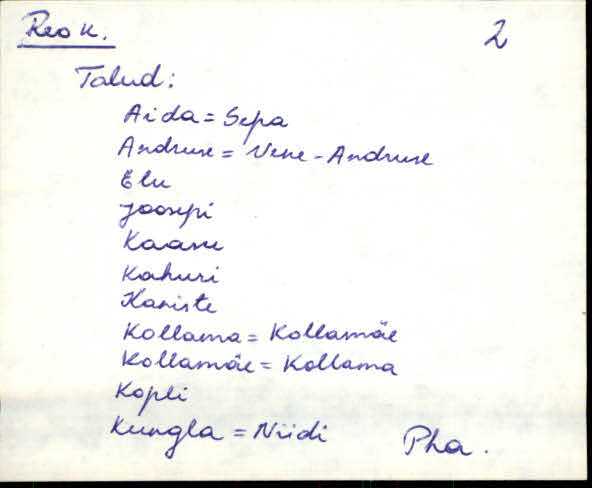 Reo k. 2
Talud:
Aida = Sepa
Andruse = Vene-Andruse
Elu
Joosepi
Kaasu
Kahuri
Kariste
Kollama = Kollamäe
Kollamäe = Kollama
Kopli
Kungla = Niidi
Pha.